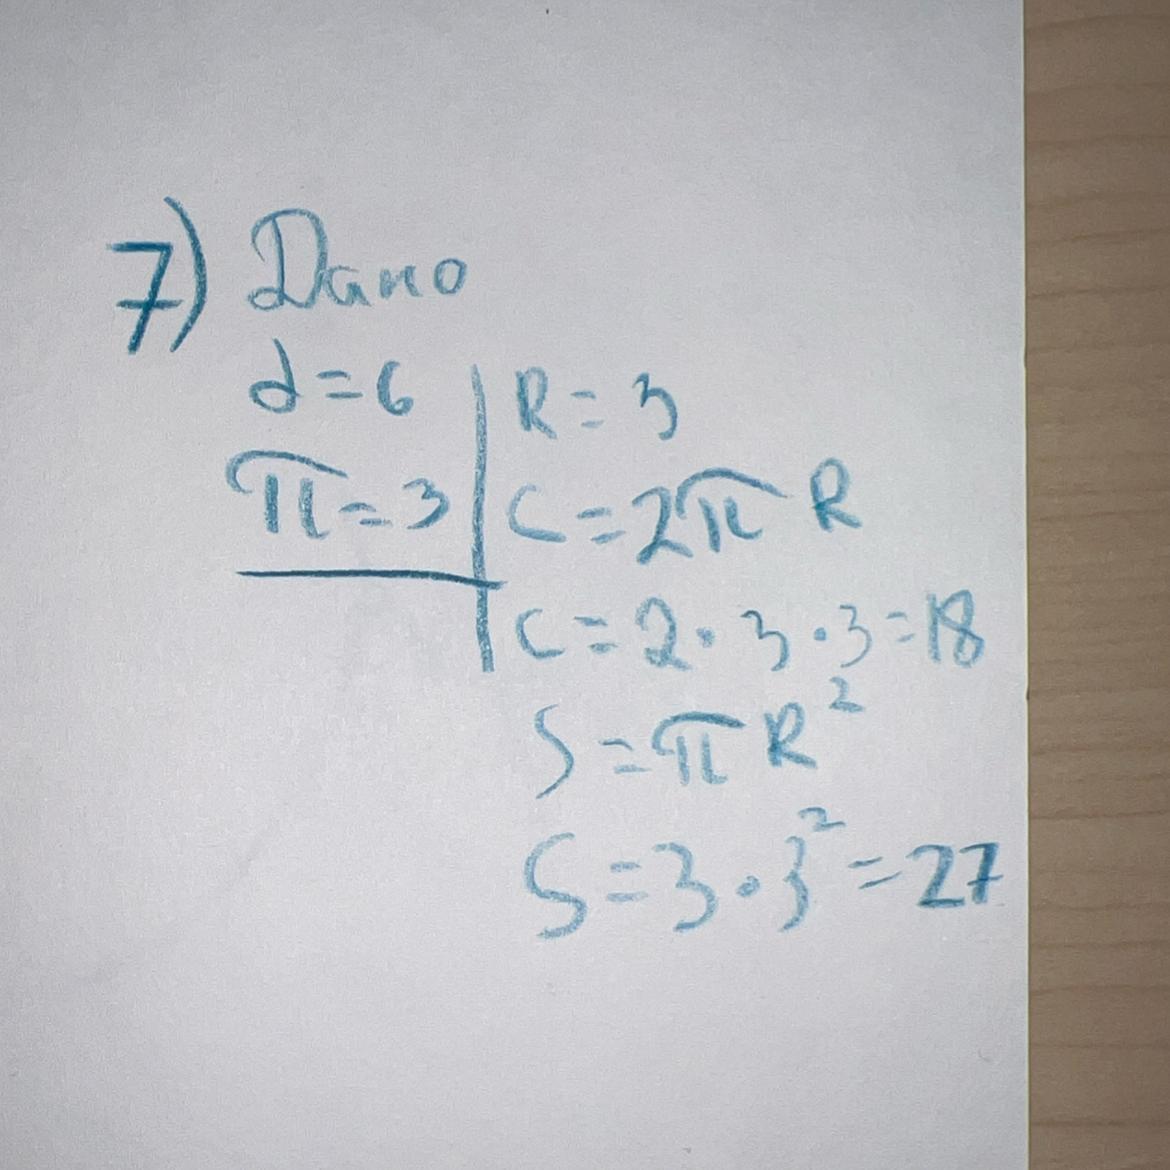 7) Дано
d=6
π=3
R=3
C=2πR
C=2·3·3=18
S=πR²
S=3·3²=27